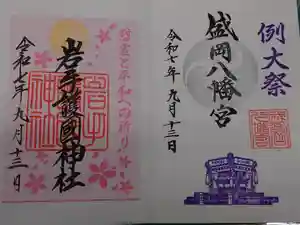 例大祭
盛岡八幡宮
令和七年 九月十三日
對霊と平和への祈り
岩手護國神社
令和七年 九月十三日
岩手
神社